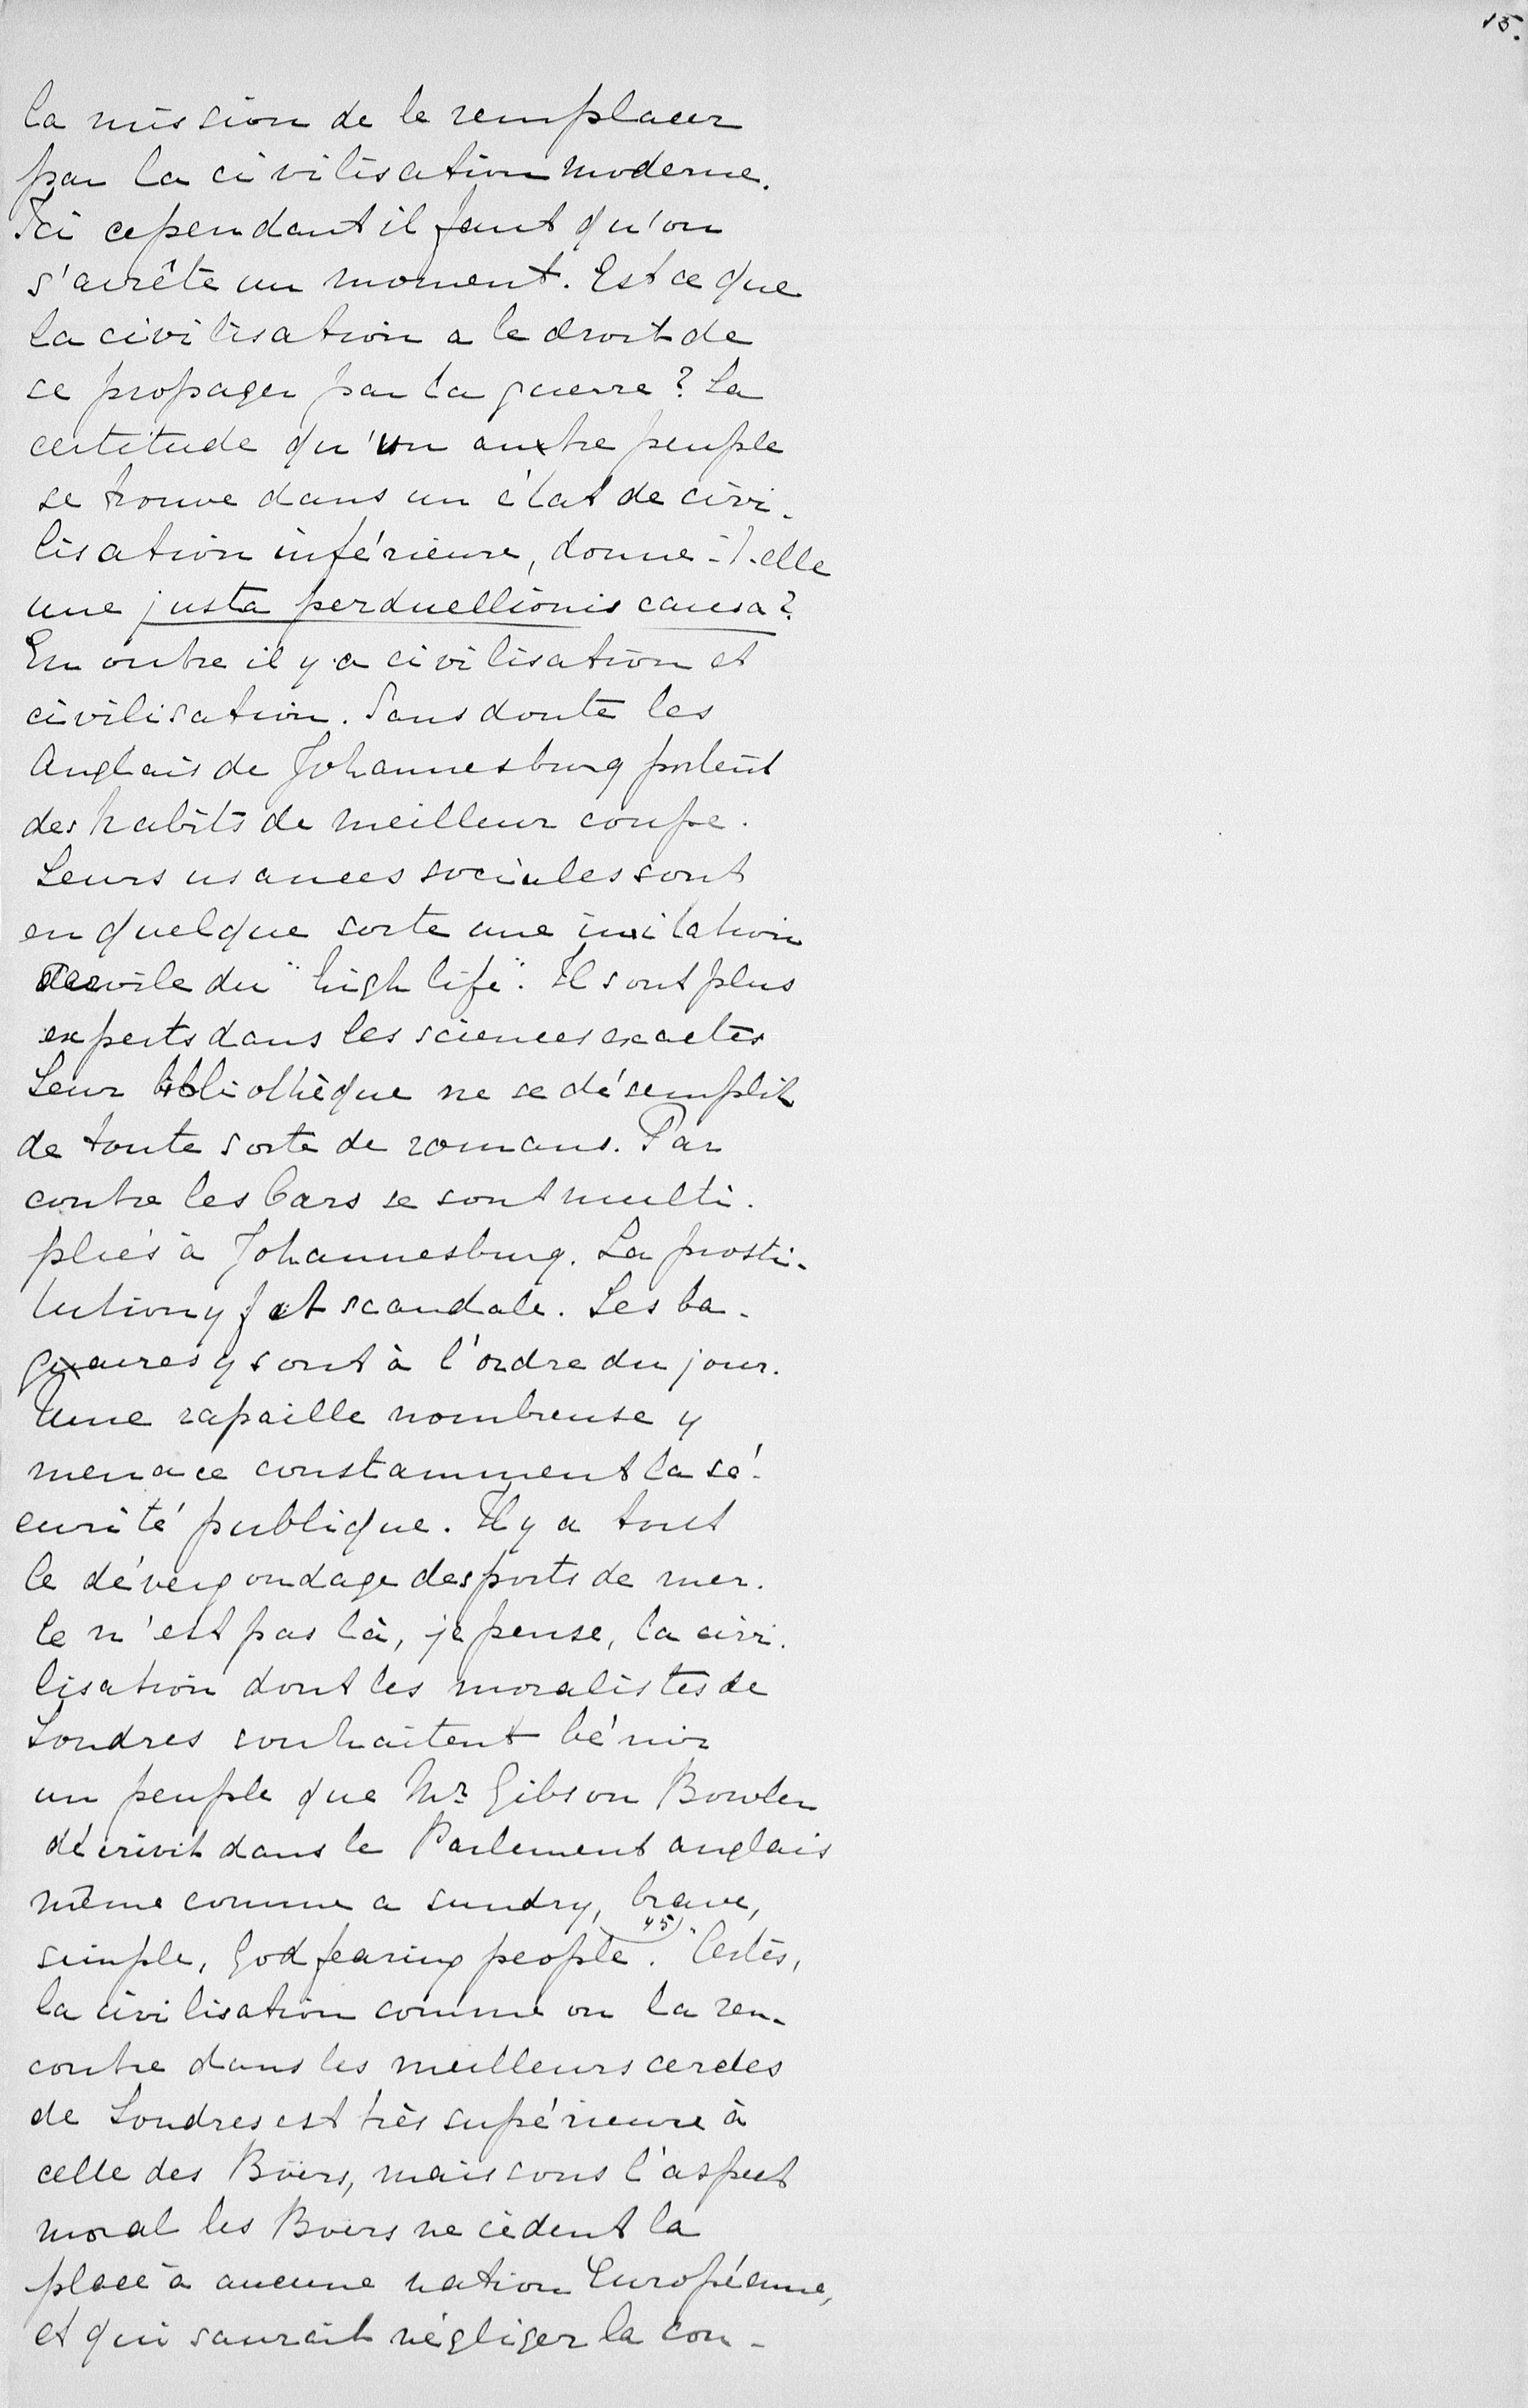 15.
la mission de le remplacer
par la civilisation moderne.
Ici cependant il faut qu'on
s'arrête un moment. Est ce que
la civilisation a le droit de
se propager par la guerre? La
certitude qu'un autre peuple
se trouve dans un état de civi-
lisation inférieure, donne-t-elle
une justa perduellionis causa?
En outre il y a civilisation et
civilisation. Sans doute les
Anglais de Johannesburg portent
des habits de meilleur coupe.
Leurs usances sociales sont
en quelque sorte une imitation
servile du "high life". Il sont plus
experts dans les sciences exactes
Leur bibliothèque ne se désemplit
de toute sorte de romans. Par
contre les bars se sont multi-
pliés à Johannesburg. La prosti-
tution y fat scandale. Les ba-
garres y sont à l'ordre du jour.
Une rapaille nombreuse y
menace constamment la sé-
curité publique. Il y a tout
le dévergondage des ports de mer.
Ce n'est pas là, je pense, la civi-
lisation dont les moralistes de
Londres souhaitent bénir
un peuple que Mr Gibson Bowles
décrivit dans le Parlement anglais
même comme a sundry, brave,
simple, God fearing people. 45) Certes,
la civilisation comme on la ren-
contre dans les meilleurs cercles
de Londres est très supérieure à
celle des Boers, mais sous l'aspect
moral les Boers ne cèdent la
place à aucune nation Européenne,
et qui saurait négliger la con-